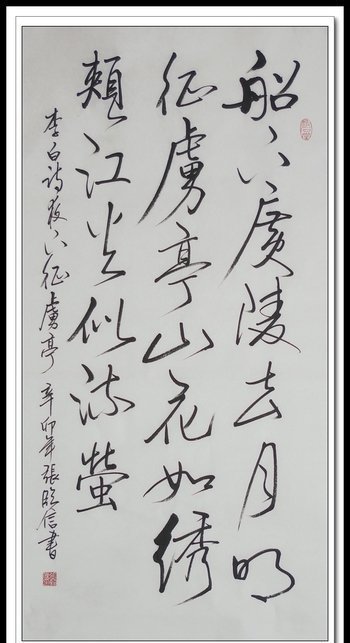 船下廣陵去月明
征虜亭山花如綉
頰江火似流螢
李白詩夜下征虜亭 辛卯年張信書